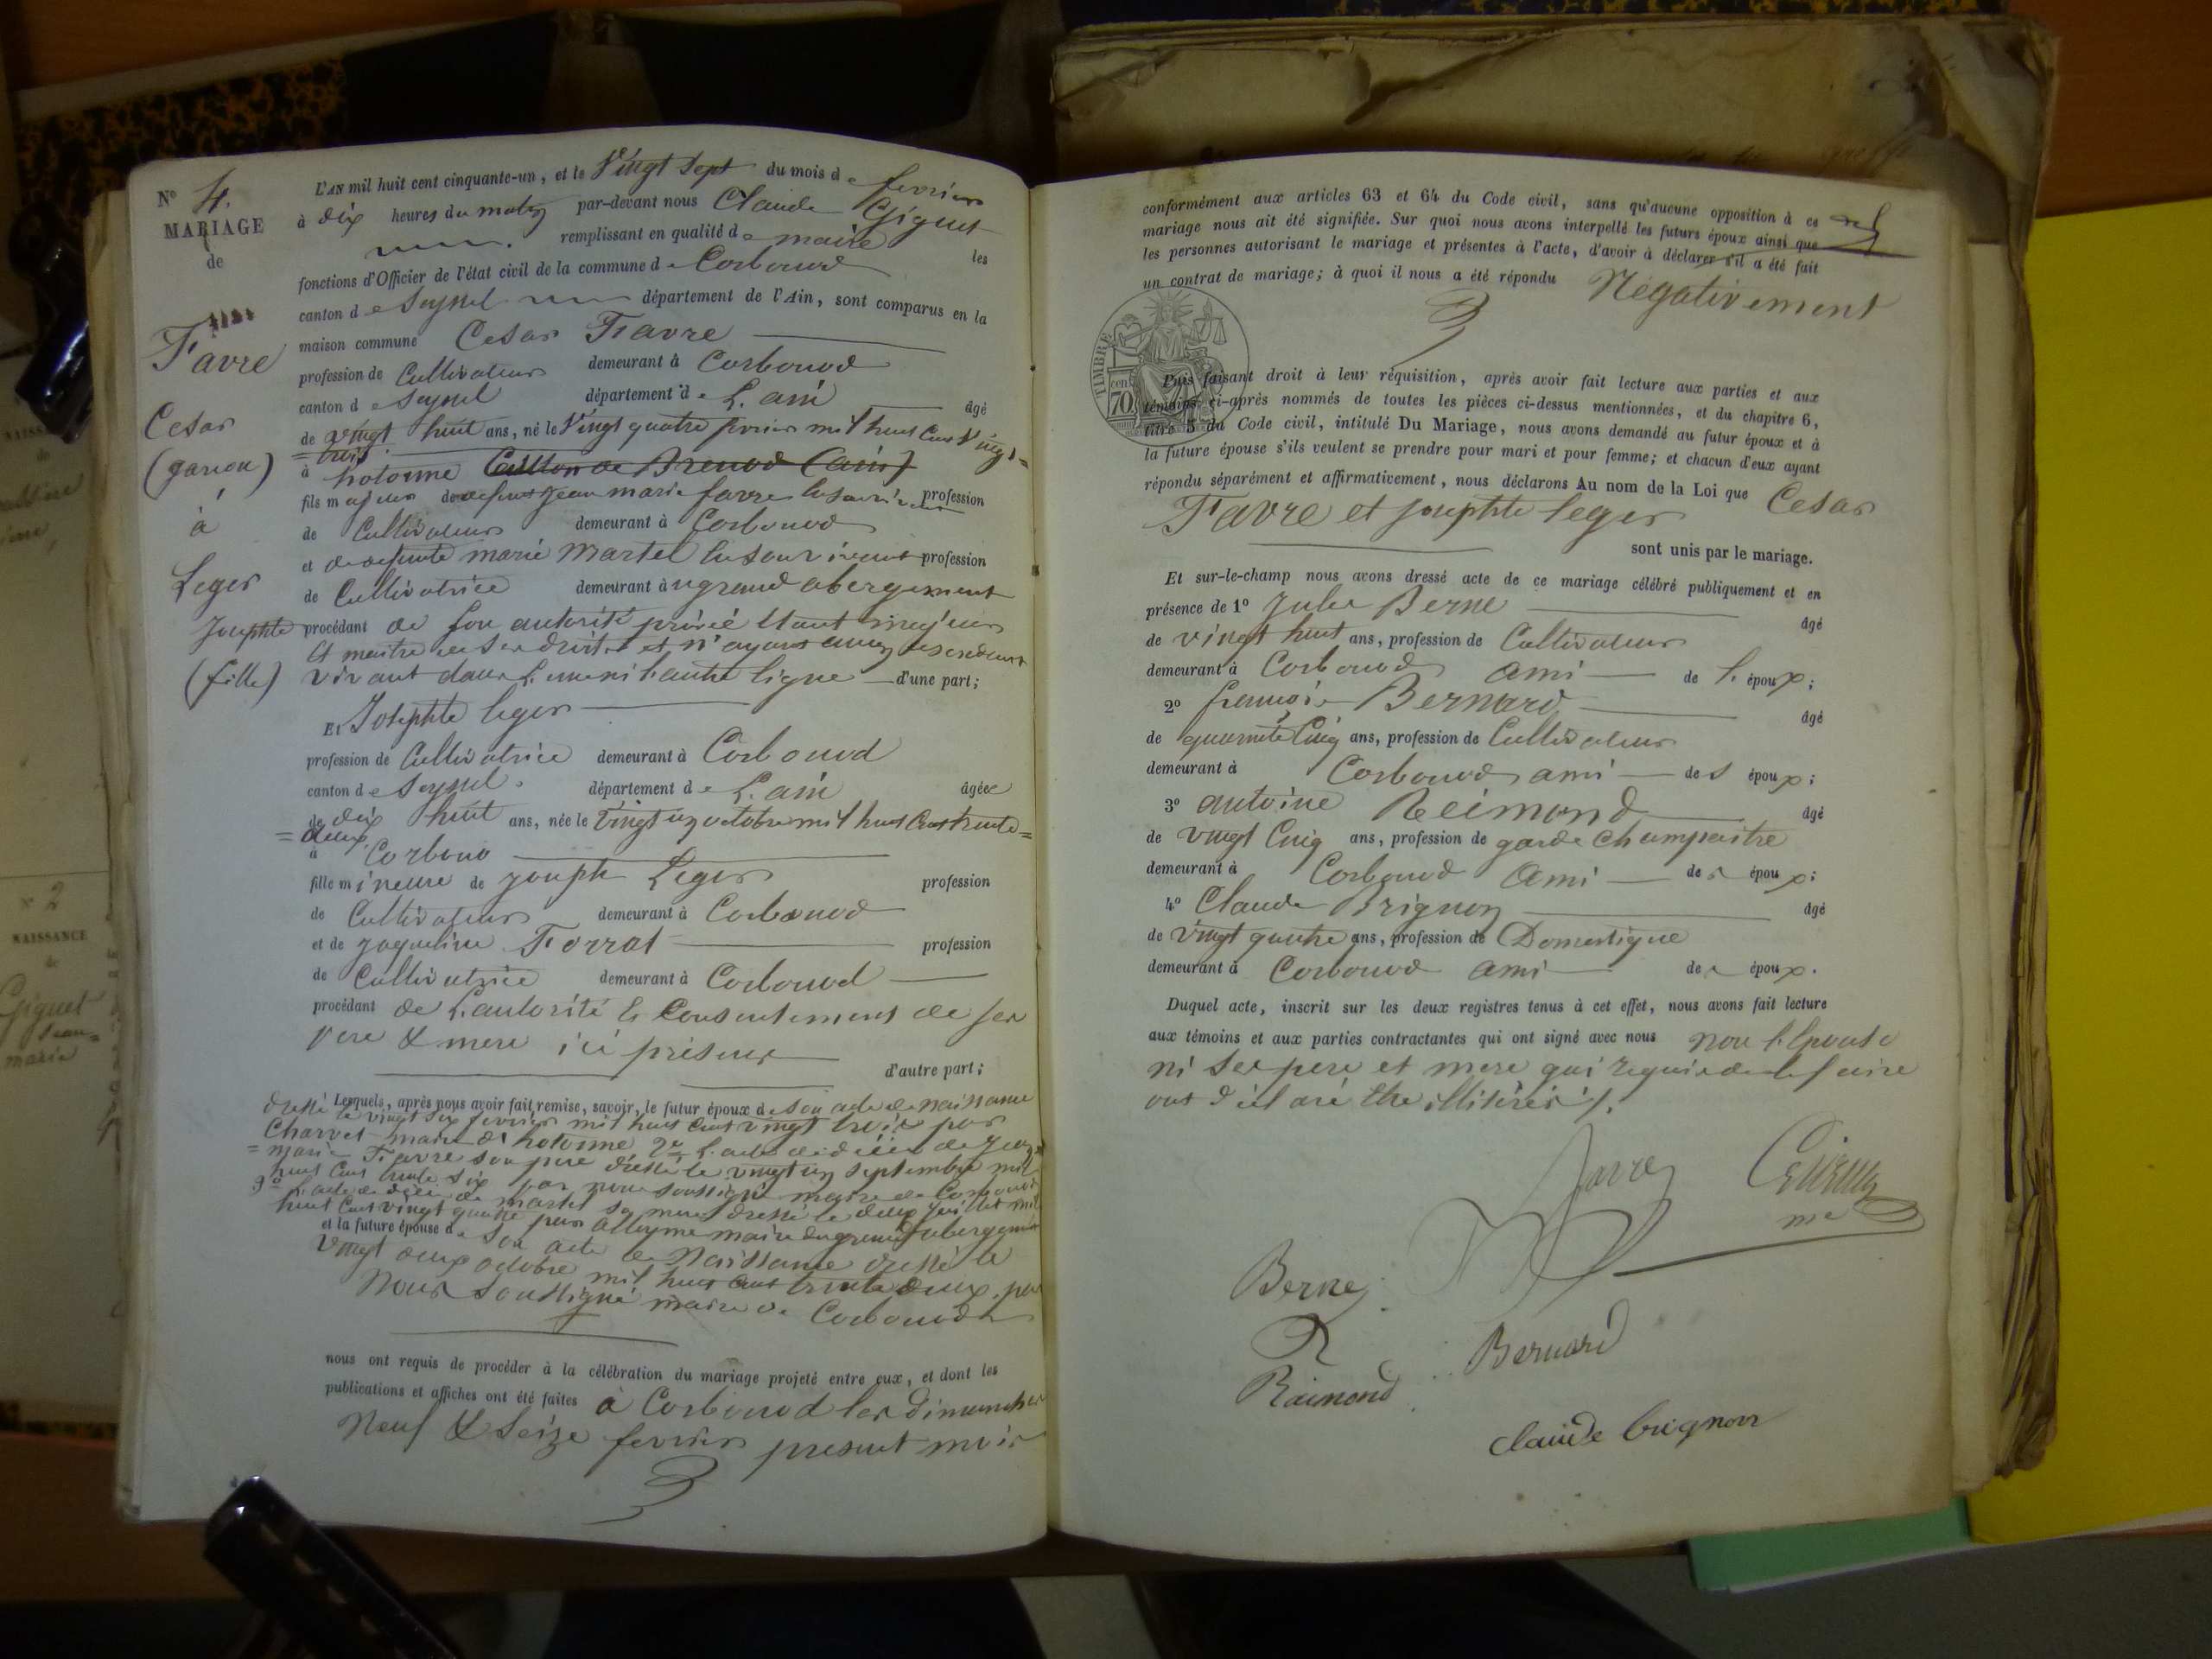 N° 4.
MARIAGE
de
Favre
Cesar
(garcon)
à
Leger
Josephte
(fille)
L'AN mil huit cent cinquante-un, et le Vingt Sept du mois de fevrier
à dix heures du matin par-devant nous Claude Giguet
remplissant en qualité de maire les
fonctions d'Officier de l'état civil de la commune de Corbonod
canton de Seyssel département de l'Ain, sont comparus en la
maison commune Cesar Favre
profession de Cultivateur demeurant à Corbonod
canton de Seyssel département de L'ain âgé
de vingt huit ans, né le Vingt quatre fevrier mil huit Cent Vingt=
=trois.
à hotonne Canton de Brenod (ain)
fils majeur de defunt Jean marie favre profession
de Cultivateur demeurant à Corbonod
et de defunte marie Martel profession
de Cultivatrice demeurant à ugrand abergement
procédant de son autorité privée étant majeur
et maitre de ses droits et n'ayant aucun ascendant
vivant dans l'une ni l'autre ligne d'une part;
Et Josephte leger
profession de Cultivatrice demeurant à Corbonod
canton de Seyssel. département de L'ain âgée
de dix huit ans, née le Vingt un octobre mil huit Cent trente=
=deux.
à Corbono
fille mineure de joseph Leger profession
de Cultivateur demeurant à Corbonod
et de jaqueline Forrat profession
de Cultivatrice demeurant à Corbonod
procédant de L'autorité & Consentement de ses
pere & mere ici présents
d'autre part;
Lesquels, après nous avoir fait remise, savoir, le futur époux de son acte de naissance
dressé le vingt six fevrier mil huit cent vingt trois par
Charvet maire d'hotonne 2° L'acte de décès de Jean=
=marie Favre son pere dressé le vingt un septembre mil
huit Cent trente six par nous soussigné maire de Corbonod
3° l'acte de décès de martel sa mere dressé le deux juillet mil
huit Cent vingt quatre par maire du grand abergement
et la future épouse de son acte de Naissance dressé le
vingt deux octobre mil huit cent trente deux, par
Nous soussigné maire de Corbonod
nous ont requis de procéder à la célébration du mariage projeté entre eux, et dont les
publications et affiches ont été faites à Corbonod les dimanches
Neuf & Seize fevrier present mois
N° 2
NAISSANCE
de
Giguet
Jean=
marie
conformément aux articles 63 et 64 du Code civil, sans qu'aucune opposition à ce
mariage nous ait été signifiée. Sur quoi nous avons interpellé les futurs époux ainsi que
les personnes autorisant le mariage et présentes à l'acte, d'avoir à déclarer s'il a été fait
un contrat de mariage; à quoi il nous a été répondu Négativement
TIMBRE
70 cen
Puis faisant droit à leur réquisition, après avoir fait lecture aux parties et aux
témoins ci-après nommés de toutes les pièces ci-dessus mentionnées, et du chapitre 6,
titre 5 du Code civil, intitulé Du Mariage, nous avons demandé au futur époux et à
la future épouse s'ils veulent se prendre pour mari et pour femme; et chacun d'eux ayant
répondu séparément et affirmativement, nous déclarons Au nom de la Loi que Cesar
Favre et josephte leger
sont unis par le mariage.
Et sur-le-champ nous avons dressé acte de ce mariage célébré publiquement et en
présence de 1° Jules Berne âgé
de vingt huit ans, profession de Cultivateur
demeurant à Corbonod ami de l' époux;
2° françois Bernard âgé
de quarante Cinq ans, profession de Cultivateur
demeurant à Corbonod ami des époux;
3° antoine Reimond âgé
de vingt Cinq ans, profession de garde champaitre
demeurant à Corbonod Ami des époux;
4° Claude Brignon âgé
de vingt quatre ans, profession de Domestique
demeurant à Corbonod ami des époux.
Duquel acte, inscrit sur les deux registres tenus à cet effet, nous avons fait lecture
aux témoins et aux parties contractantes qui ont signé avec nous non l'Epouse
ni ses pere et mere qui requis de le faire
ont déclaré être illitérés.
favre
Berne
Bernard
Raimond
claude brignon